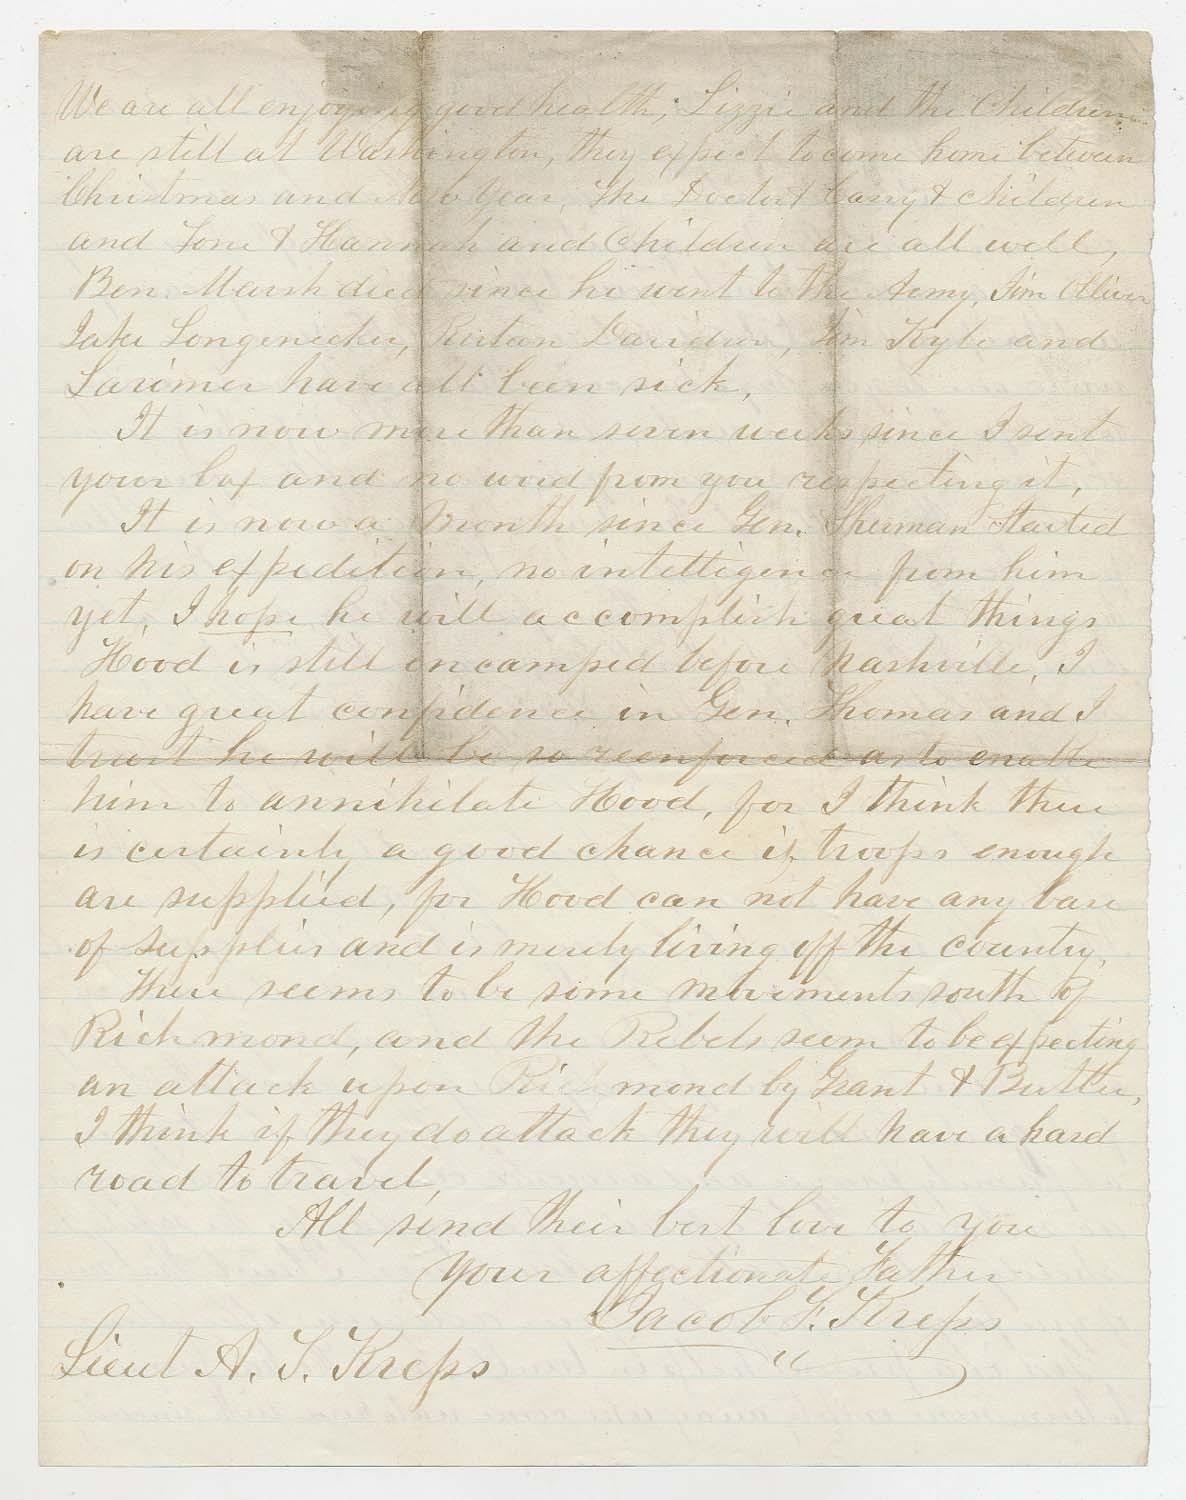 We are all enjoying good health, Lizzie and the Children
are still at Washington, they expect to come home between
Christmas and New Year, The Doctor & Carry & children
and Tom & Hannah and Children are all well,
Ben. Marsh died since he went to the Army, Jim Oliver
Jake Longenecker, Davidson, Jim Kyle and
Larimer have all been sick,
It is now more than seven weeks since I sent
your box and no word from you respecting it,
It is now a Month since Gen. Sherman Started
on his expedition, no intelligence from him
yet, I hope he will accomplish great things
Hood is still encamped before Nashville, I
have great confidence in Gen. Thomas and I
trust he will be so reenforced as to enable
him to annihilate Hood, for I think there
is certainly a good chance if troops enough
are supplied, for Hood can not have any base
of supplies and is merely living off the country,
There seems to be some movements south of
Richmond, and the Rebels seem to be expecting
an attack upon Richmond by Grant & Butler,
I think if they do attack they will have a hard
road to travel,
All send their best love to you
Your affectionate Father
Jacob F. Kreps
Lieut A. T. Kreps